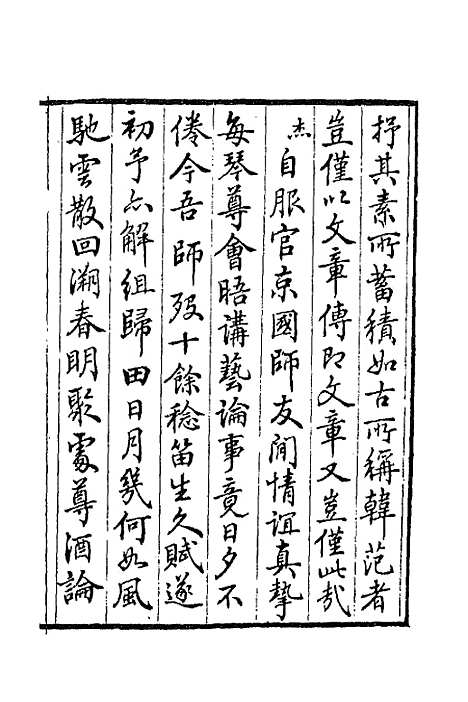 抒其素所蓄積如古所稱韓范者
豈僅以文章傳即文章又豈僅此哉
杰自服官京國師友間情誼真摯
每琴尊會晤講藝論事竟日夕不
倦今吾師歿十餘稔笛生久賦遂
初予亦解組歸田日月幾何如風
馳雲散回溯春明聚處尊酒論